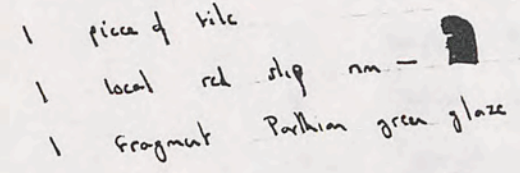 1 piece of tile
1 local red slip rim —
1 fragment Parthian green glaze